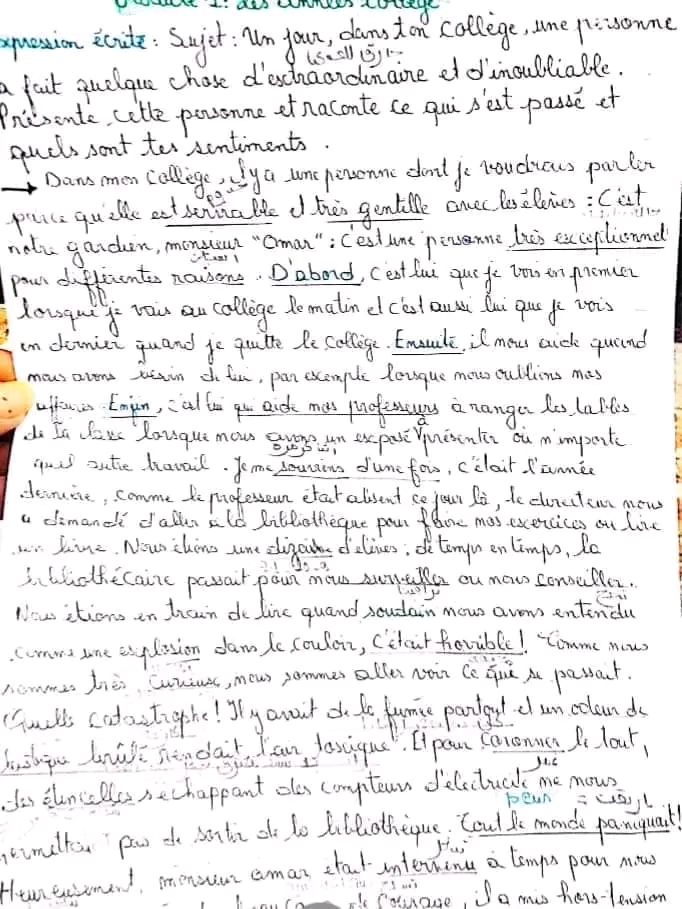 des années collège
expression écrite : Sujet : Un jour, dans ton collège, une personne
a fait quelque chose d'extraordinaire et d'inoubliable.
Présente cette personne et raconte ce qui s'est passé et
quels sont tes sentiments.
→ Dans mon collège, il y a une personne dont je voudrais parler
parce qu'elle est serviable et très gentille avec les élèves : C'est
notre gardien, monsieur "Omar" : C'est une personne très exceptionnel
pour différentes raisons. D'abord, c'est lui que je vois en premier
lorsque je vais au collège le matin et c'est aussi lui que je vois
en dernier quand je quitte le collège. Ensuite, il nous aide quand
nous avons besoin de lui, par exemple lorsque nous oublions nos
affaires. Enfin, c'est lui qui aide nos professeurs à ranger les tables
de la classe lorsque nous avons un exposé à présenter où n'importe
quel autre travail. Je me souviens d'une fois, c'était l'année
dernière, comme le professeur était absent ce jour là, le directeur nous
a demandé d'aller à la bibliothèque pour faire nos exercices ou lire
un livre. Nous étions une dizaine d'élèves ; de temps en temps, la
bibliothécaire passait pour nous surveiller ou nous conseiller.
Nous étions en train de lire quand soudain nous avons entendu
comme une explosion dans le couloir, c'était horrible ! Comme nous
sommes très curieuse, nous sommes aller voir ce que se passait.
Quelle catastrophe ! Il y avait de la fumée partout et un odeur de
brûlé rendait l'air toxique. Et pour couronner le tout,
des étincelles s'échappant des compteurs d'électricité ne nous
peur
permettait pas de sortir de la bibliothèque. Tout le monde paniquait !
Heureusement, monsieur omar etait intervenu à temps pour nous
de courage, Il a mis hors-tension